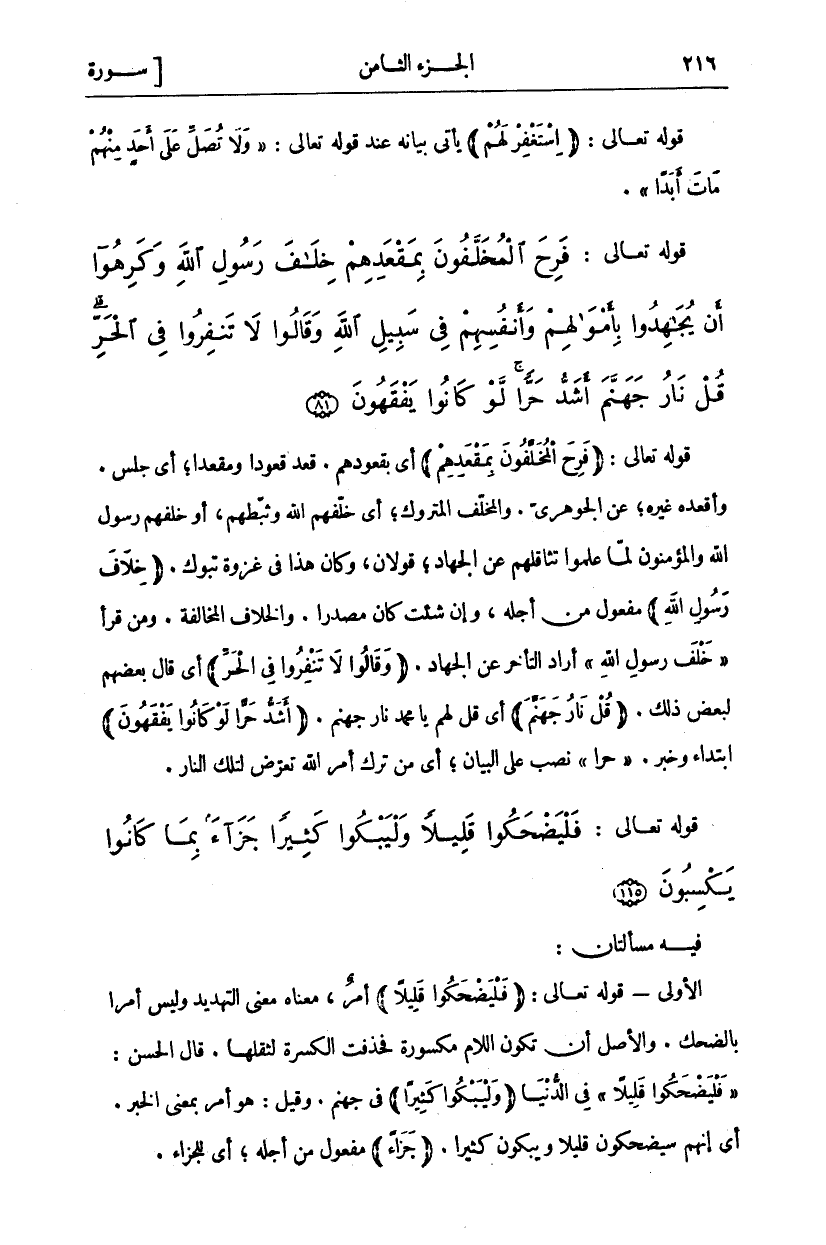 ٢١٦ الجـزء الثـامن [ ســورة
قوله تعـالى : ﴿ اِسْتَغْفِرْ لَهُمْ ﴾ يأتى بيانه عند قوله تعالى : « وَلَا تُصَلِّ عَلَى أَحَدٍ مِنْهُمْ
مَاتَ أَبَدًا » .
قوله تعـالى : فَرِحَ ٱلْمُخَلَّفُونَ بِمَقْعَدِهِمْ خِلَٰفَ رَسُولِ ٱللَّهِ وَكَرِهُوٓا
أَن يُجَٰهِدُوا بِأَمْوَٰلِهِمْ وَأَنفُسِهِمْ فِى سَبِيلِ ٱللَّهِ وَقَالُوا لَا تَنفِرُوا فِى ٱلْحَرِّۗ
قُلْ نَارُ جَهَنَّمَ أَشَدُّ حَرًّاۚ لَّوْ كَانُوا يَفْقَهُونَ ﴿٨١﴾
قوله تعالى : ﴿ فَرِحَ الْمُخَلَّفُونَ بِمَقْعَدِهِمْ ﴾ أى بقعودهم . قعد قعودا ومقعدا؛ أى جلس .
وأقعده غيره؛ عن الجوهرىّ . والمخلّف المتروك؛ أى خلّفهم الله وثبّطهم، أو خلفهم رسول
الله والمؤمنون لمّا علموا تثاقلهم عن الجهاد؛ قولان، وكان هذا فى غزوة تبوك . ﴿ خِلَافَ
رَسُولِ اللهِ ﴾ مفعول من أجله ، وإن شئت كان مصدرا . والخلاف المخالفة . ومن قرأ
« خَلْفَ رسولِ اللهِ » أراد التأخر عن الجهاد . ﴿ وَقَالُوا لَا تَنْفِرُوا فِى الْحَرِّ ﴾ أى قال بعضهم
لبعض ذلك . ﴿ قُلْ نَارُ جَهَنَّمَ ﴾ أى قل لهم يا محمد نار جهنم . ﴿ أَشَدُّ حَرًّا لَوْ كَانُوا يَفْقَهُونَ ﴾
ابتداء وخبر . « حرا » نصب على البيان ؛ أى من ترك أمر الله تعرّض لتلك النار .
قوله تعـالى : فَلْيَضْحَكُوا قَلِيلًا وَلْيَبْكُوا كَثِيرًا جَزَآءَۢ بِمَا كَانُوا
يَكْسِبُونَ
فيـه مسألتان :
الأولى – قوله تعـالى : ﴿ فَلْيَضْحَكُوا قَلِيلًا ﴾ أمرٌ ، معناه معنى التهديد وليس أمرا
بالضحك . والأصل أن تكون اللام مكسورة فحذفت الكسرة لثقلها . قال الحسن :
« فَلْيَضْحَكُوا قَلِيلًا » فِى الدُّنْيَا ﴿ وَلْيَبْكُوا كَثِيرًا ﴾ فى جهنم . وقيل : هو أمر بمعنى الخبر .
أى إنهم سيضحكون قليلا ويبكون كثيرا . ﴿ جَزَاءً ﴾ مفعول من أجله ؛ أى للجزاء .